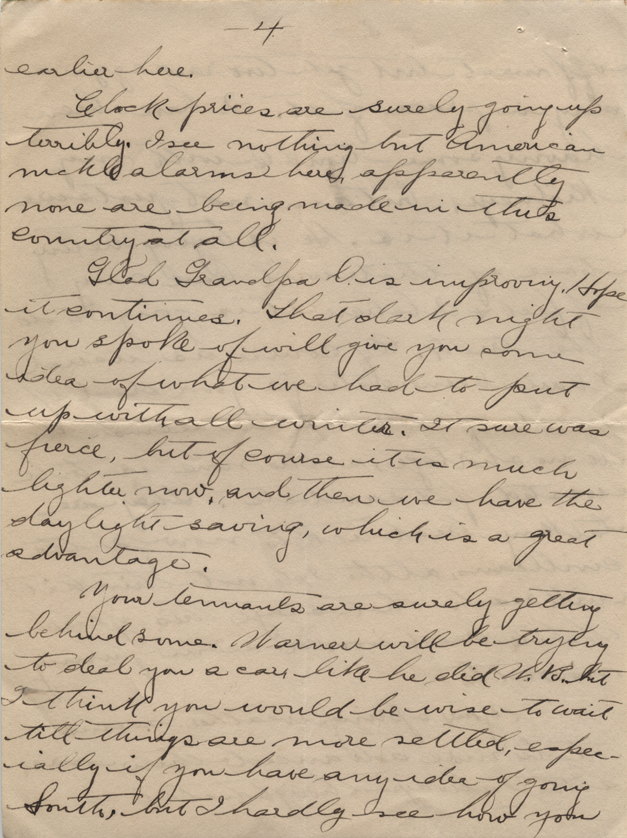 - 4
earlier here.
Clock prices are surely going up
terribly. I see nothing but American
nickle alarms here, apparently
none are being made in this
country at all.
Glad Grandpa O. is improving. Hope
it continues. That dark night
you spoke of will give you some
idea of what we had to put
up with all winter. It sure was
fierce, but of course it is much
lighter now, and then we have the
daylight saving, which is a great
advantage.
Your tennants are surely getting
behind some. Warner will be trying
to deal you a car like he did W. B. but
I think you would be wise to wait
till things are more settled, espec-
ially if you have any idea of going
South, but I hardly see how you